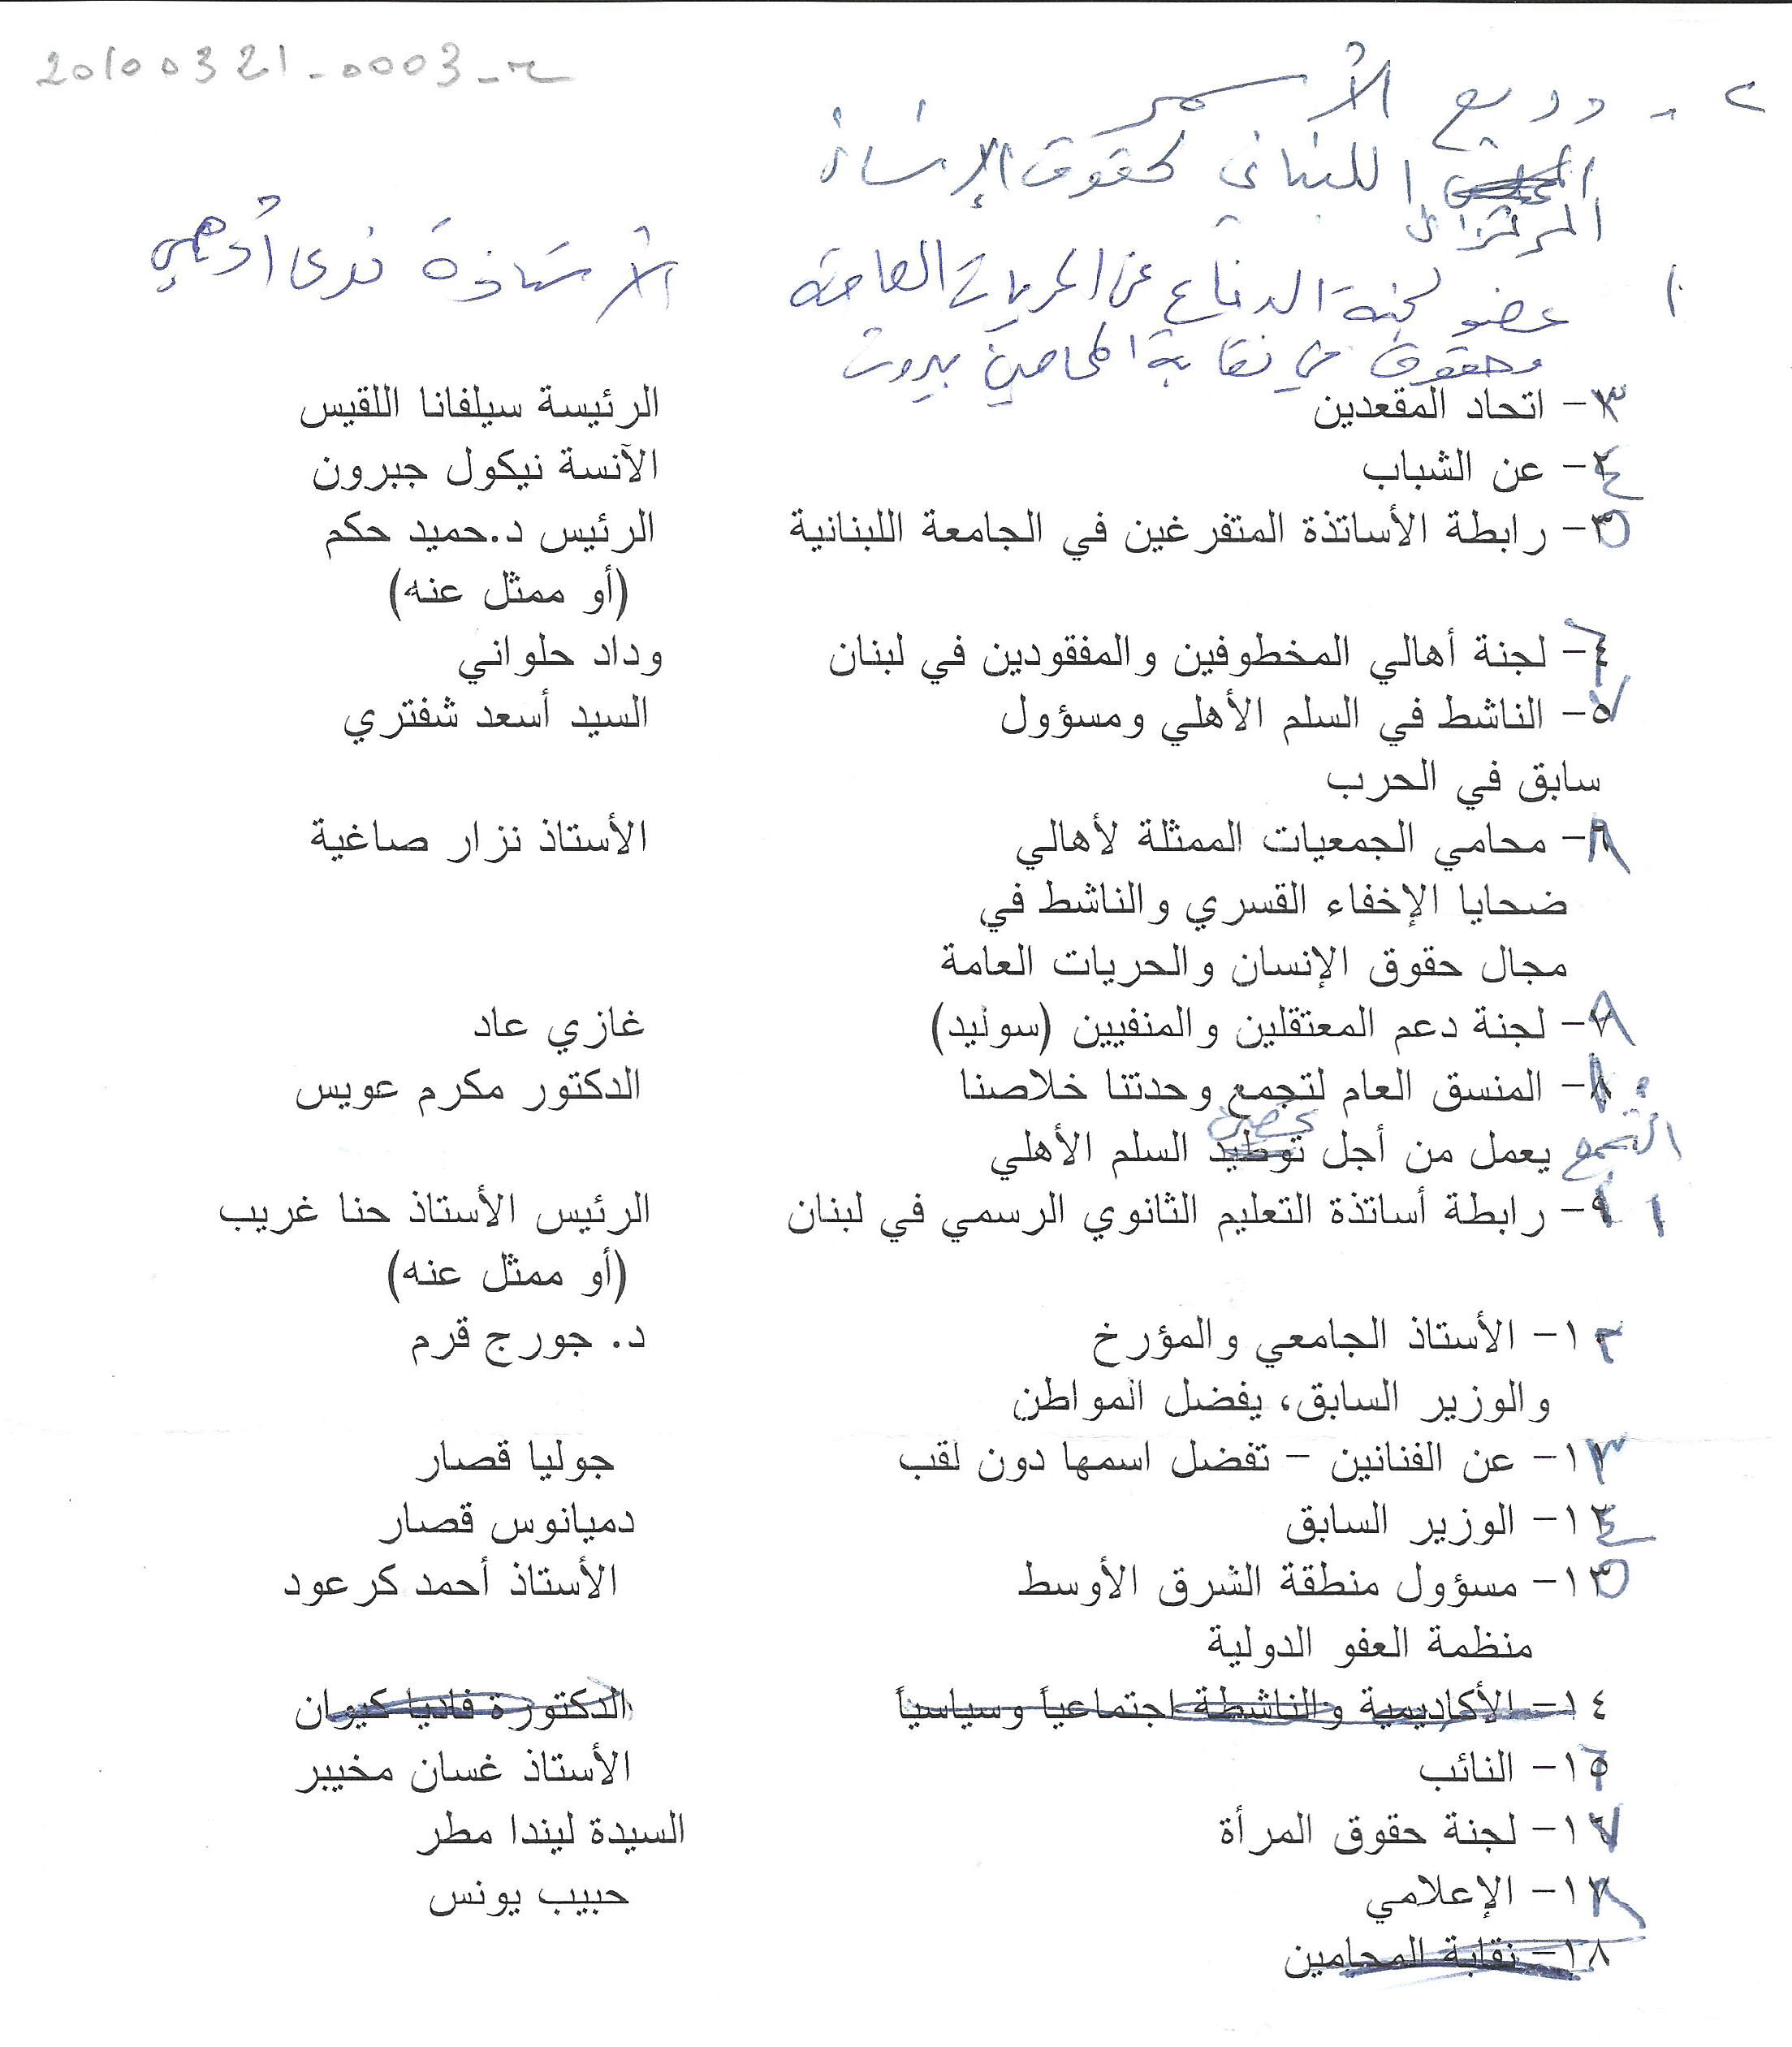 20100321-0003-r
٢ - وديع الأسمر
المركز اللبناني لحقوق الإنسان
١ عضو لجنة الدفاع عن الحريات العامة الأستاذة ندى أدهمي
وحقوق في نقابة المحامين بيروت
٣- اتحاد المقعدين الرئيسة سيلفانا اللقيس
٤- عن الشباب الآنسة نيكول جبرون
٥- رابطة الأساتذة المتفرغين في الجامعة اللبنانية الرئيس د.حميد حكم
(أو ممثل عنه)
٦- لجنة أهالي المخطوفين والمفقودين في لبنان وداد حلواني
٧- الناشط في السلم الأهلي ومسؤول السيد أسعد شفتري
سابق في الحرب
٨- محامي الجمعيات الممثلة لأهالي الأستاذ نزار صاغية
ضحايا الإخفاء القسري والناشط في
مجال حقوق الإنسان والحريات العامة
٩- لجنة دعم المعتقلين والمنفيين (سوليد) غازي عاد
١٠- المنسق العام لتجمع وحدتنا خلاصنا الدكتور مكرم عويس
التجمع يعمل من أجل توطيد تحصين السلم الأهلي
١١- رابطة أساتذة التعليم الثانوي الرسمي في لبنان الرئيس الأستاذ حنا غريب
(أو ممثل عنه)
١٢- الأستاذ الجامعي والمؤرخ د. جورج قرم
والوزير السابق، يفضل المواطن
١٣- عن الفنانين - تفضل اسمها دون لقب جوليا قصار
١٤- الوزير السابق دميانوس قصار
١٥- مسؤول منطقة الشرق الأوسط الأستاذ أحمد كرعود
منظمة العفو الدولية
١٤- الأكاديمية والناشطة اجتماعياً وسياسياً الدكتورة فاديا كيوان
١٦- النائب الأستاذ غسان مخيبر
١٧- لجنة حقوق المرأة السيدة ليندا مطر
١٨- الإعلامي حبيب يونس
١٨- نقابة المحامين